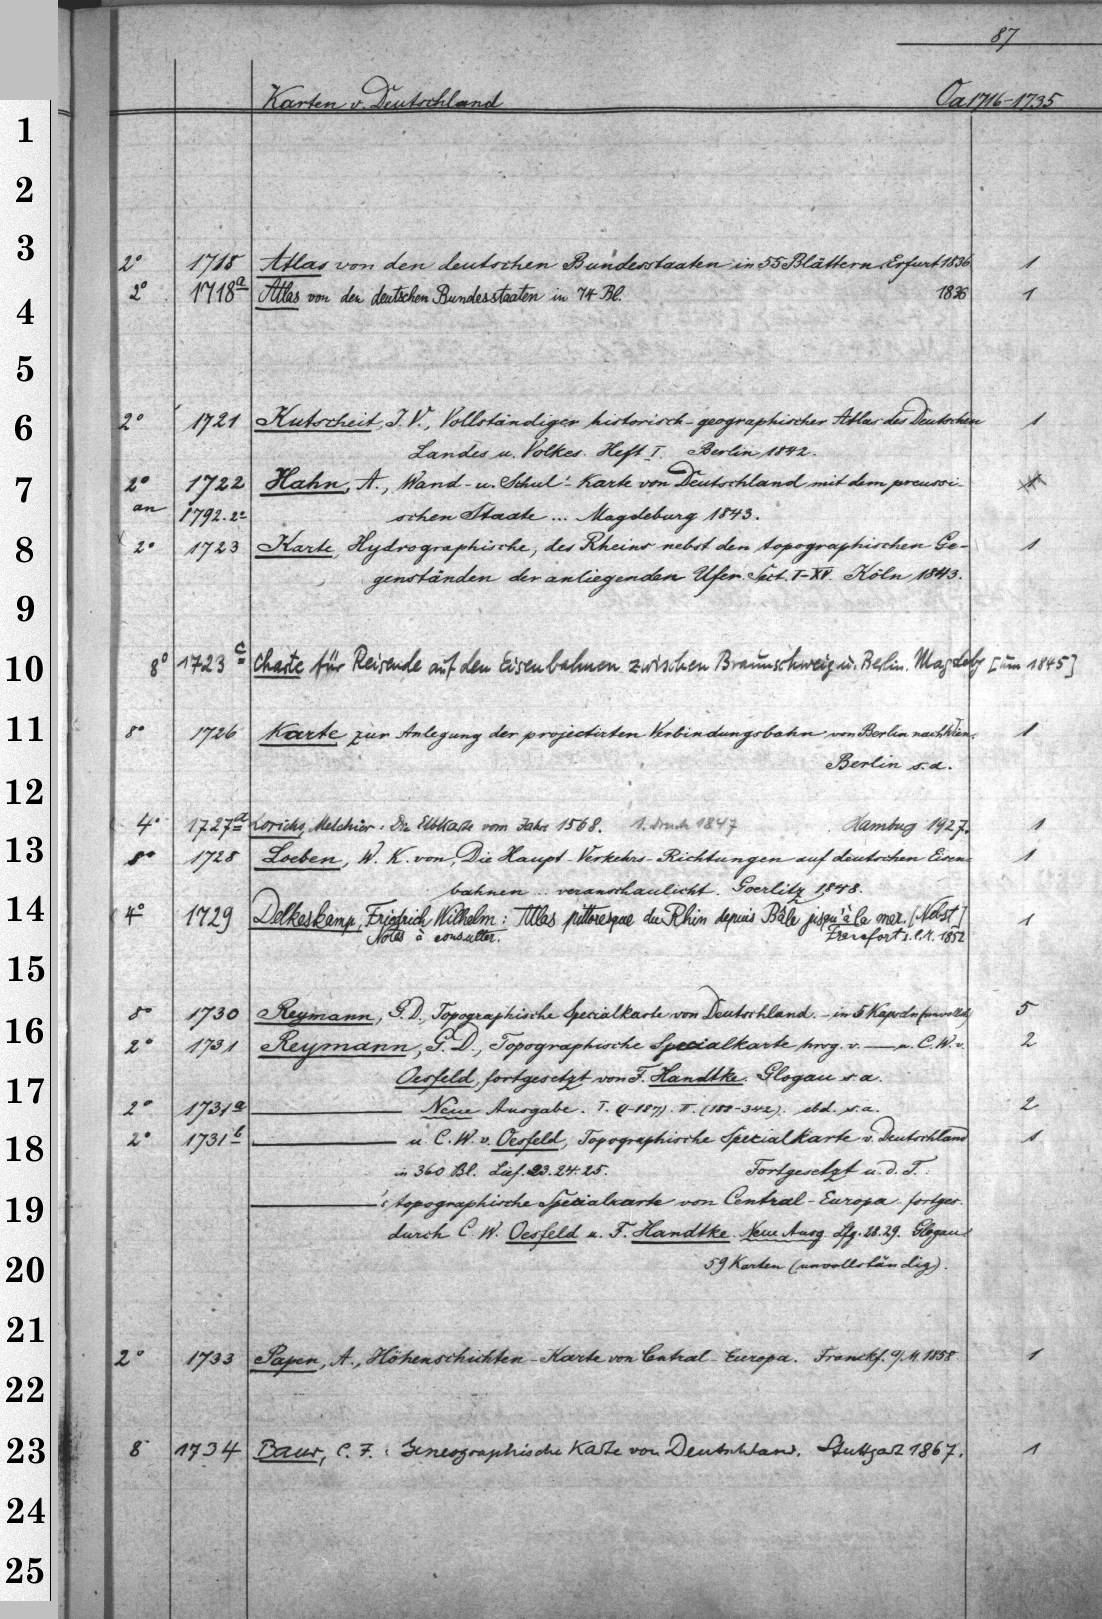 87
Karten v. Deutschland Oa 1716-1735
1
2
3
2° 1718 Atlas von den deutschen Bundesstaaten in 55 Blättern. Erfurt 1836 1
2° 1718a Atlas von den deutschen Bundesstaaten in 74 Bl. 1836 1
4
5
6
2° 1721 Kutscheit, J. V., Vollständiger historisch-geographischer Atlas des Deutschen 1
Landes u. Volkes. Heft I. Berlin 1842.
7
2° 1722 Hahn, A., Wand- u. Schul-Karte von Deutschland mit dem preussi- 1
an 1792. 2° schen Staate ... Magdeburg 1843.
8
2° 1723 Karte, Hydrographische, des Rheins nebst den topographischen Ge- 1
genständen der anliegenden Ufer. Sect. I-XV. Köln 1843.
9
10
8° 1723c Charte für Reisende auf den Eisenbahnen zwischen Braunschweig u. Berlin. Magdebg [um 1845]
11
8° 1726 Karte zur Anlegung der projectirten Verbindungsbahn von Berlin nach Wien. 1
Berlin s.a.
12
4° 1727a Lorichs, Melchior: Die Elbkarte vom Jahre 1568. 1. Druck 1847 Hamburg 1927. 1
13
8° 1728 Loeben, W. K. von, Die Haupt-Verkehrs-Richtungen auf deutschen Eisen- 1
bahnen ... veranschaulicht. Goerlitz 1848.
14
4° 1729 Delkeskamp, Friedrich Wilhelm: Atlas pittoresque du Rhin depuis Bâle jusqu'à la mer. [Nebst] 1
Notes à consulter. Francfort s. l. M. 1852
15
8° 1730 Reymann, G. D., Topographische Specialkarte von Deutschland. - in 5 Kapseln (unvollst.) 5
16
2° 1731 Reymann, G. D., Topographische Specialkarte hrsg. v. — u. C. W. v. 2
Oesfeld, fortgesetzt von F. Handtke. Glogau s.a.
17
2° 1731a — Neue Ausgabe. I. (1-187). II. (188-342). ebd. s.a. 2
18
2° 1731b — u. C. W. v. Oesfeld, Topographische Specialkarte v. Deutschland 1
in 360 Bl. Lief. 23. 24. 25. Fortgesetzt u. d. T.:
19
—'s topographische Specialkarte von Central-Europa. fortges.
durch C. W. Oesfeld u. F. Handtke. Neue Ausg. Lfg. 28. 29. Glogau
20
59 Karten (unvollständig).
21
2° 1733 Papen, A., Höhenschichten-Karte von Central-Europa. Franckf. a/M. 1858 1
22
23
8 1734 Baur, C. F.: Geneographische Karte von Deutschland. Stuttgart 1867. 1
24
25